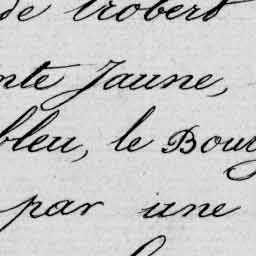 de Trobert
nte Jaune,
bleu, le Bour
par une